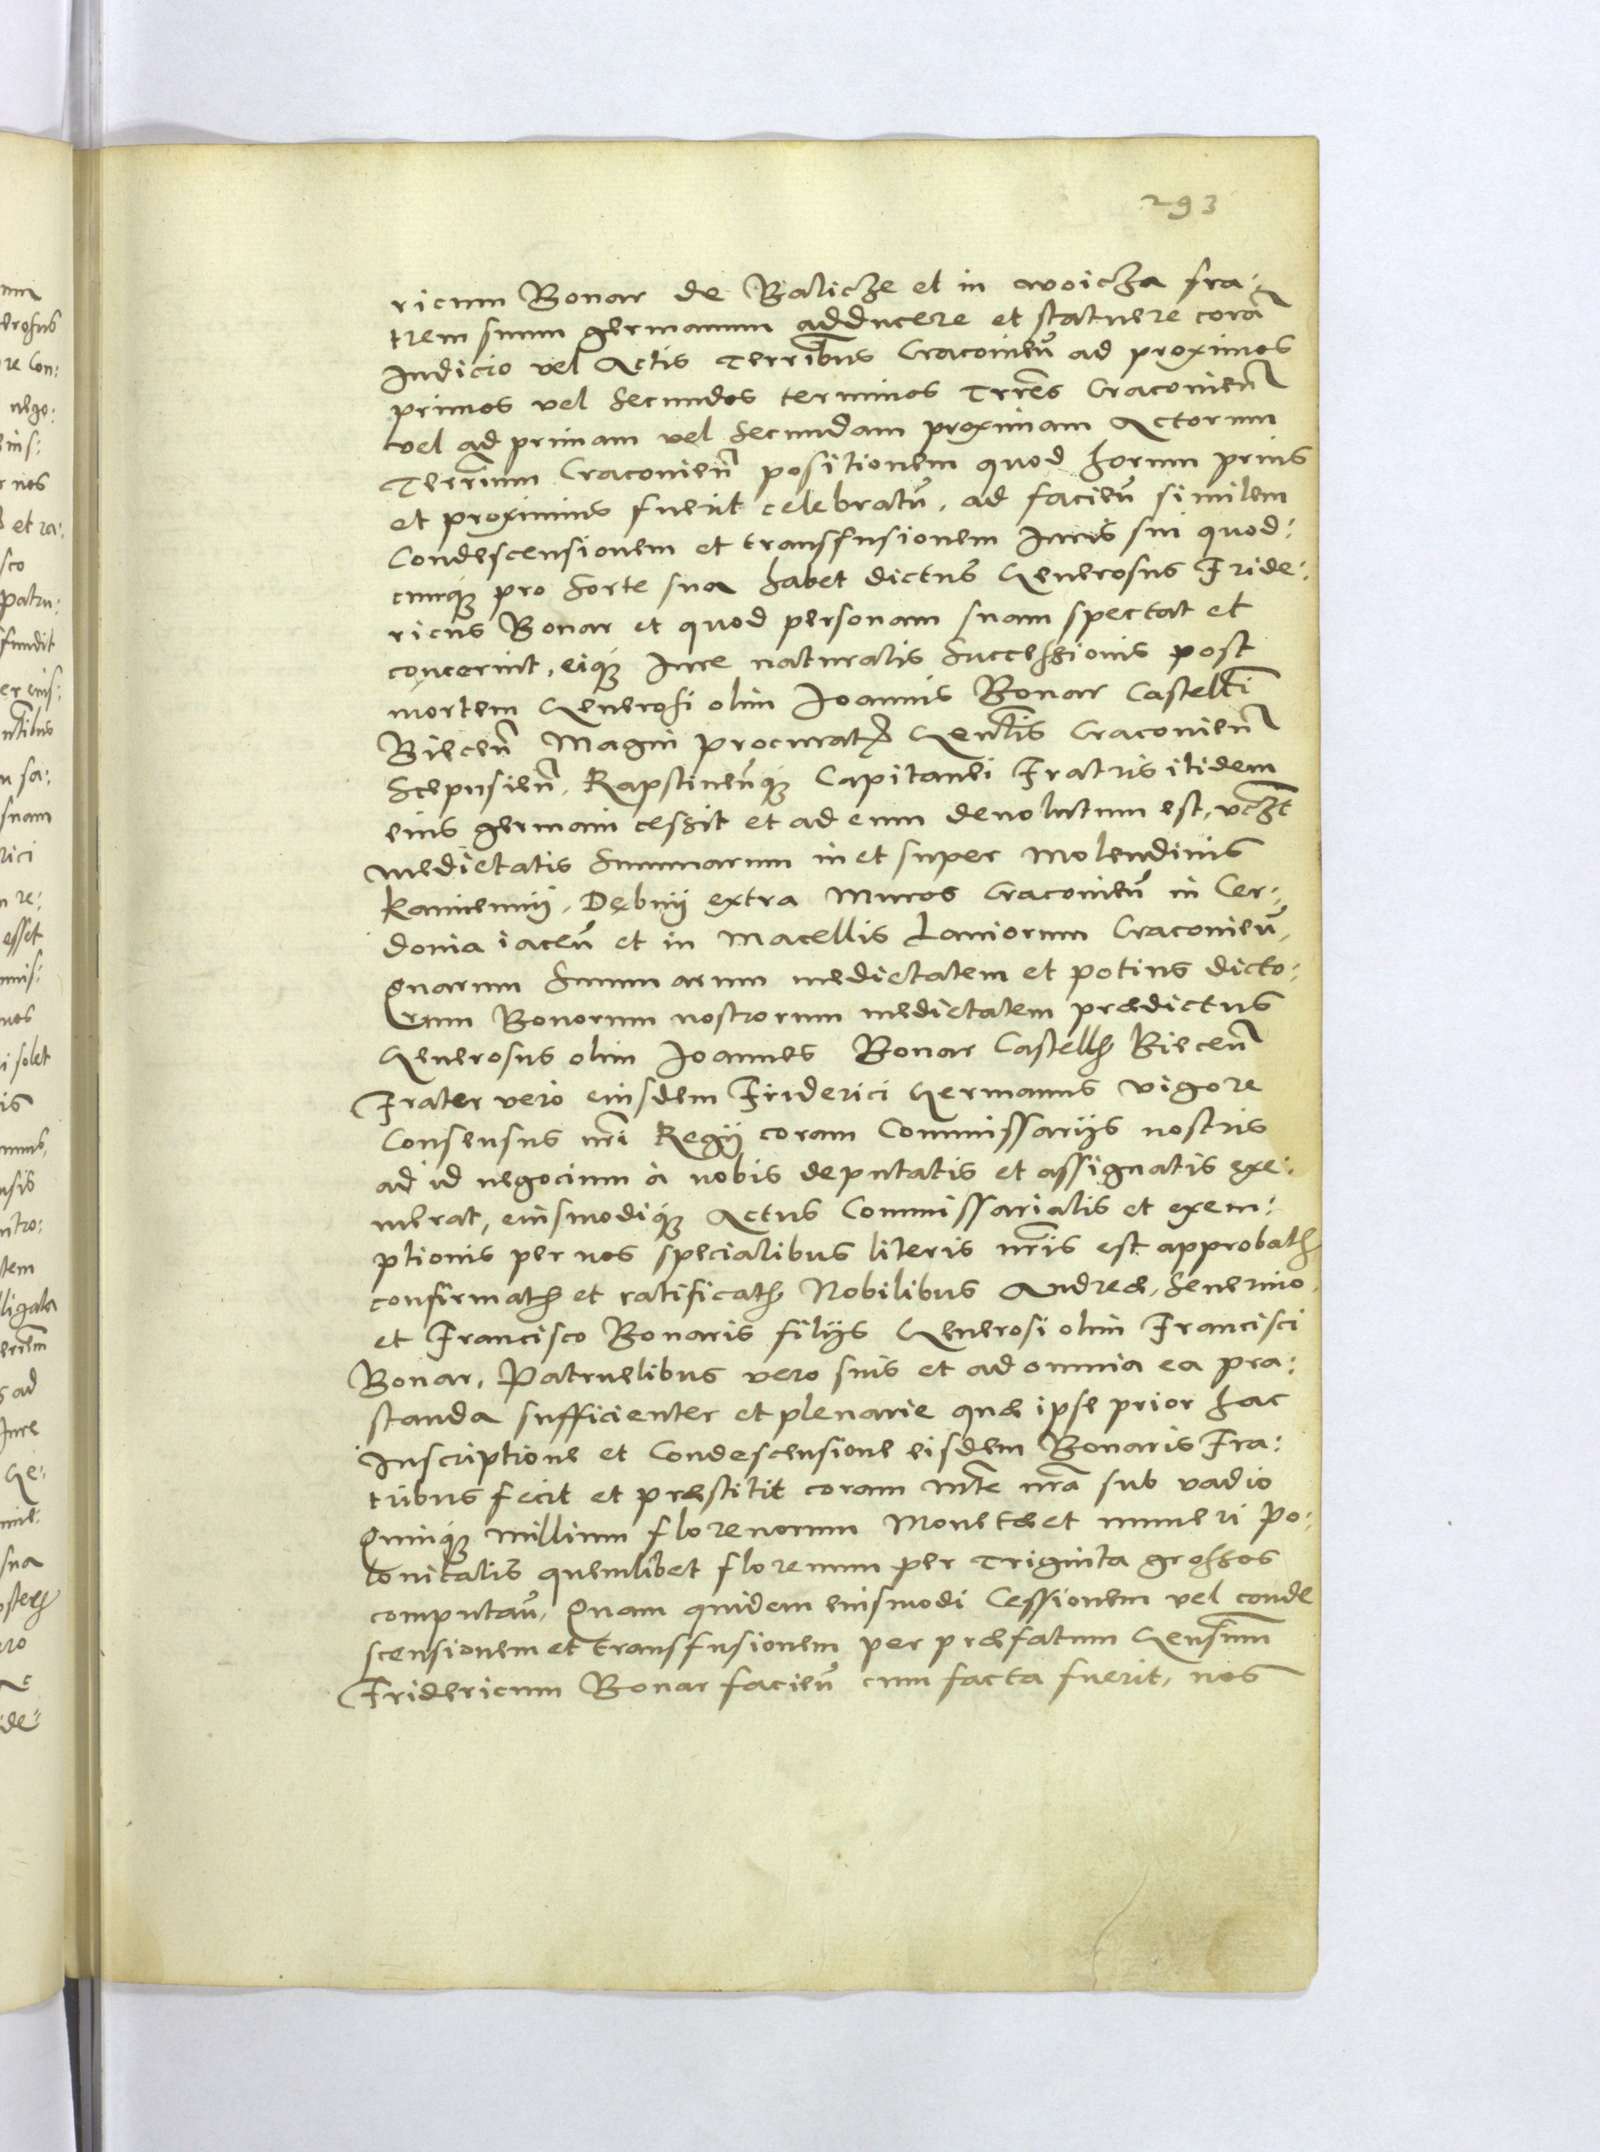 293
ricum Bonar de Balicze et in Woicza fra-
trem suum germanum adducere et statuere corã
Iudicio vel Actis Terribus Cracovień ad proximos
primos vel secundos terminos Trres Cracovień
vel ad primam vel secundam proximam Actorum
Terrium Cracovień positionem quod horum prius
et proximius fuerit celebratũ, ad facień similem
Condescensionem et transfusionem Iuris sui quod:
cunq3 pro sorte sua habet dictus Generosus Fride:
ricus Bonar et quod personam suam spectat et
concernit, eiq3 Iure naturalis successionis post
mortem Generosi olim Ioannis Bonar Castelli
Biecen̄ Magni procurat Genlis Cracovień
Scepusień, Rapstineńq3 Capitanei Fratris itidem
eius germani cessit et ad eum devolutum est, vczt
medietatis Summarum in et super molendinis
Kamiennii, Dębnii extra muros Cracovień in Cer-
donia iaceń et in macellis Laniorum Cracovień,
Quarum Summarum medietatem et potius dicto:
rum Bonorum nostrorum medietatem prædictus
Generosus olim Ioannes Bonar Castell Biecen̄
Frater vero eiusdem Friderici Germanus vigore
Consensus nri Regii coram Commissariis nostris
ad id negocium à nobis deputatis et assignatis exe:
merat, eiusmodiq3 Actus Commissarialis et exem:
ptionis per nos specialibus literis nris est approbat
confirmat et ratificat Nobilibus Andreæ, Severino,
et Francisco Bonaris filiis Generosi olim Francisci
Bonar, Patruelibus vero suis et ad omnia ea præ:
standa sufficienter et plenarie quæ ipse prior hac
Inscriptione et Condescensione eisdem Bonaris Fra:
tribus fecit et præstitit coram Mte nra sub vadio
Quinq3 millium florenorum Monetæ et numeri Po:
lonicalis quemlibet florenum per Triginta grossos
computań, Quam quidem eiusmodi Cessionem vel conde
scensionem et transfusionem per præfatum Gensum
Fridericum Bonar facień cum facta fuerit, nos